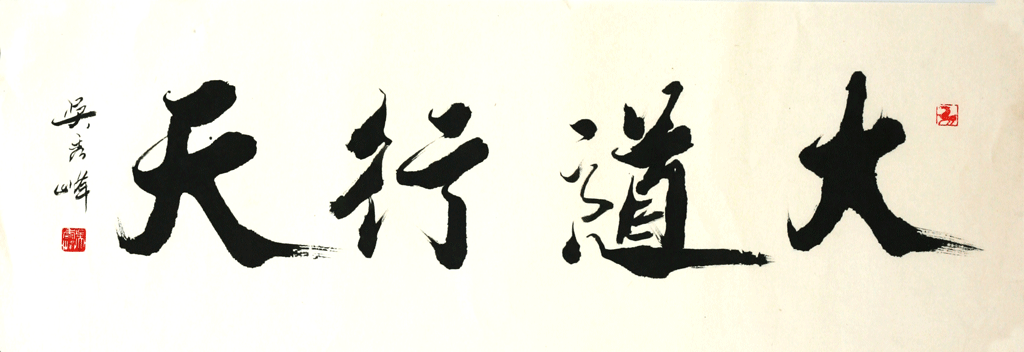 大道行天
吳秀峰